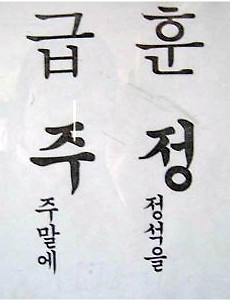 급훈
주정
주말에
정석을